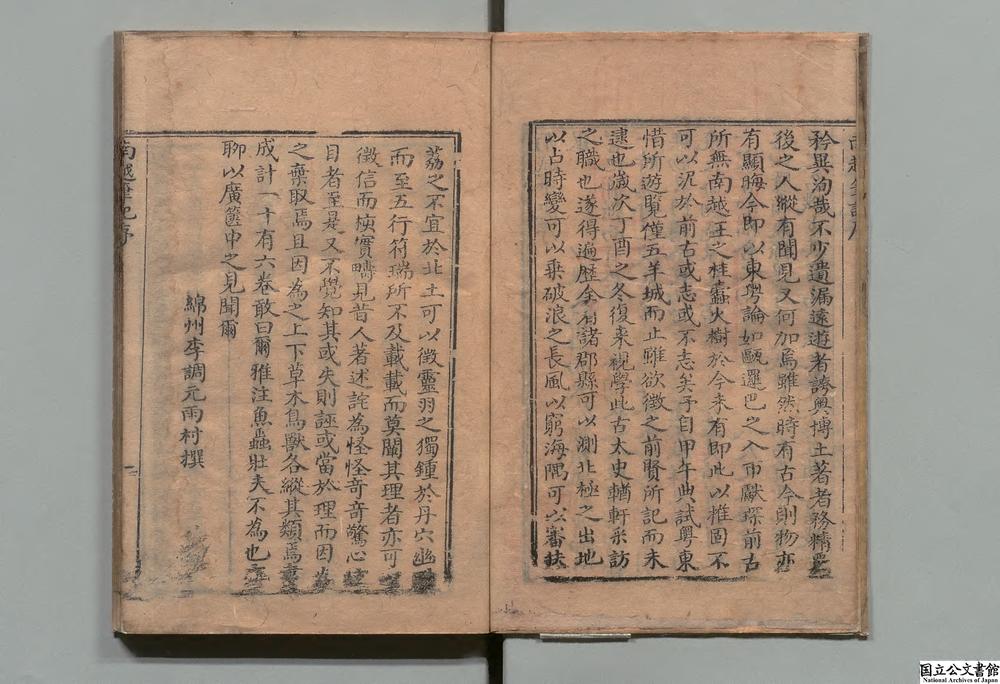 矜異洵哉不少遺漏遠遊者誇奧博土著者務精
後之人縱有聞見又何加焉雖然時有古今則物亦
有顯晦今即以東粤論如甌邏巴之入市獻琛前古
所無南越王之桂蠹火樹於今未有即此以推固不
可以泥於前古或志或不志矣予自甲午典試粤東
惜所遊覽僅五羊城而止雖欲徵之前賢所記而未
逮也歲次丁酉之冬復来視學此古太史輶軒采訪
之職也遂得遍歷全省諸郡縣可以測北極之出地
以占時變可以乘破浪之長風以窮海隅可以審扶
荔之不宜於北土可以徵靈羽之獨鍾於丹穴幽
而至五行符瑞所不及載載而莫闡其理者亦可
徵信而摭實疇見昔人著述詫為怪怪奇奇驚心
目者至是又不覺知其或失則誣或當於理而因為
之棄取焉且因為之上下草木鳥獸各縱其類焉書
成計一十有六卷敢曰爾雅注魚蟲壯夫不為也
聊以廣篋中之見聞爾
綿州李調元雨村撰
南越筆記序
国立公文書館
National Archives of Japan